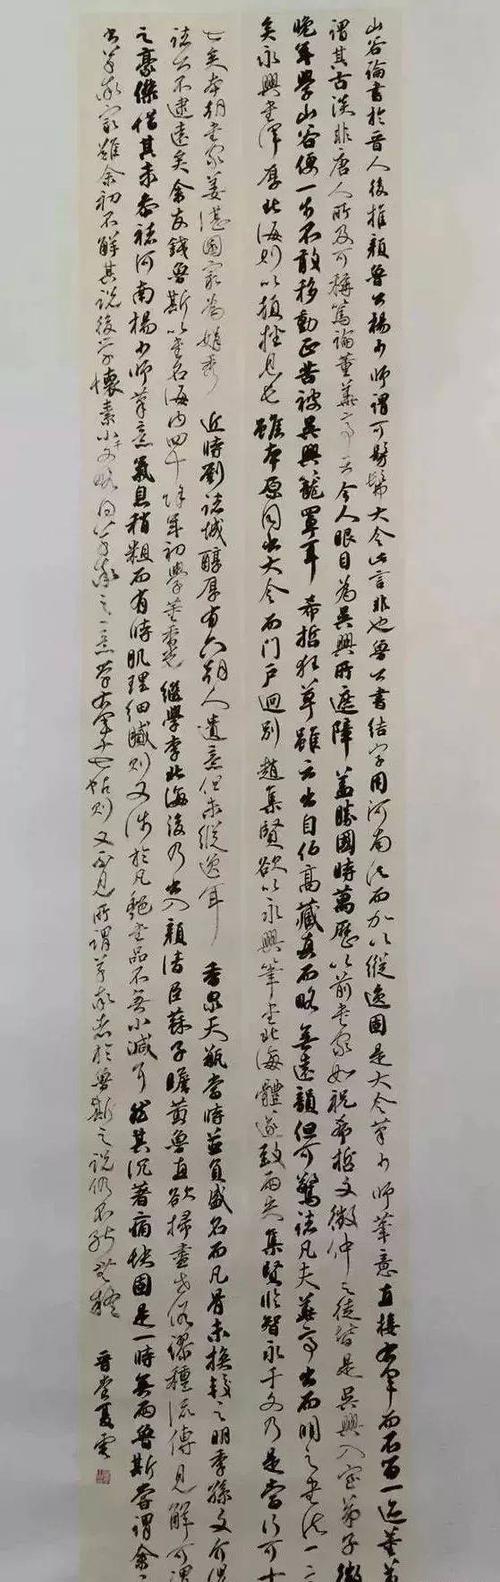 山谷論書於晉人後推顏魯公楊少師謂可髣髴大令此言非也魯公書結字用河南法而加以縱逸固是大令草少師筆意直接右軍而不一近董華
謂其古淡非唐人所及可稱篤論董華亭云今人眼目為吳興所遮障蓋勝國時萬歷以前書家如祝希哲文徵仲之徒皆是吳興入室弟子徵
晚年學山谷便一步不敢移動正苦被吳興籠罩耳希哲狂草雖云出自伯高藏真而略無遠韻但可驚諸凡夫華亭出而明之書法一
矣永興書渾厚北海則以頓挫見也雖本原同出大令而門戶迥別趙集賢欲以永興筆書北海體遂致兩失集賢臨智永千文乃是當行可十
七矣本朝書家姜湛園最為娟秀近時劉諸城醇厚有六朝人遺意但未縱逸耳香泉天瓶當時並負盛名而凡骨未換較之明季孫文介倪
諸公不逮遠矣余友錢魯斯以書名海內四十餘年初學董香光繼學李北海後乃出入顏清臣蘇子瞻黃魯直欲掃盡世俗謬種流傳見解可謂
之豪傑惜其未參褚河南楊少師筆意氣息稍粗而有時肌理細膩則又涉於凡艷書品不無小減耳然其沉著痛快固是一時無兩魯斯嘗謂余
出草家雖余初不解其說後學懷素小千文略得草之意學右軍十七帖則又不見所謂草者於魯斯之說仍不能無疑
晉堂夏雲